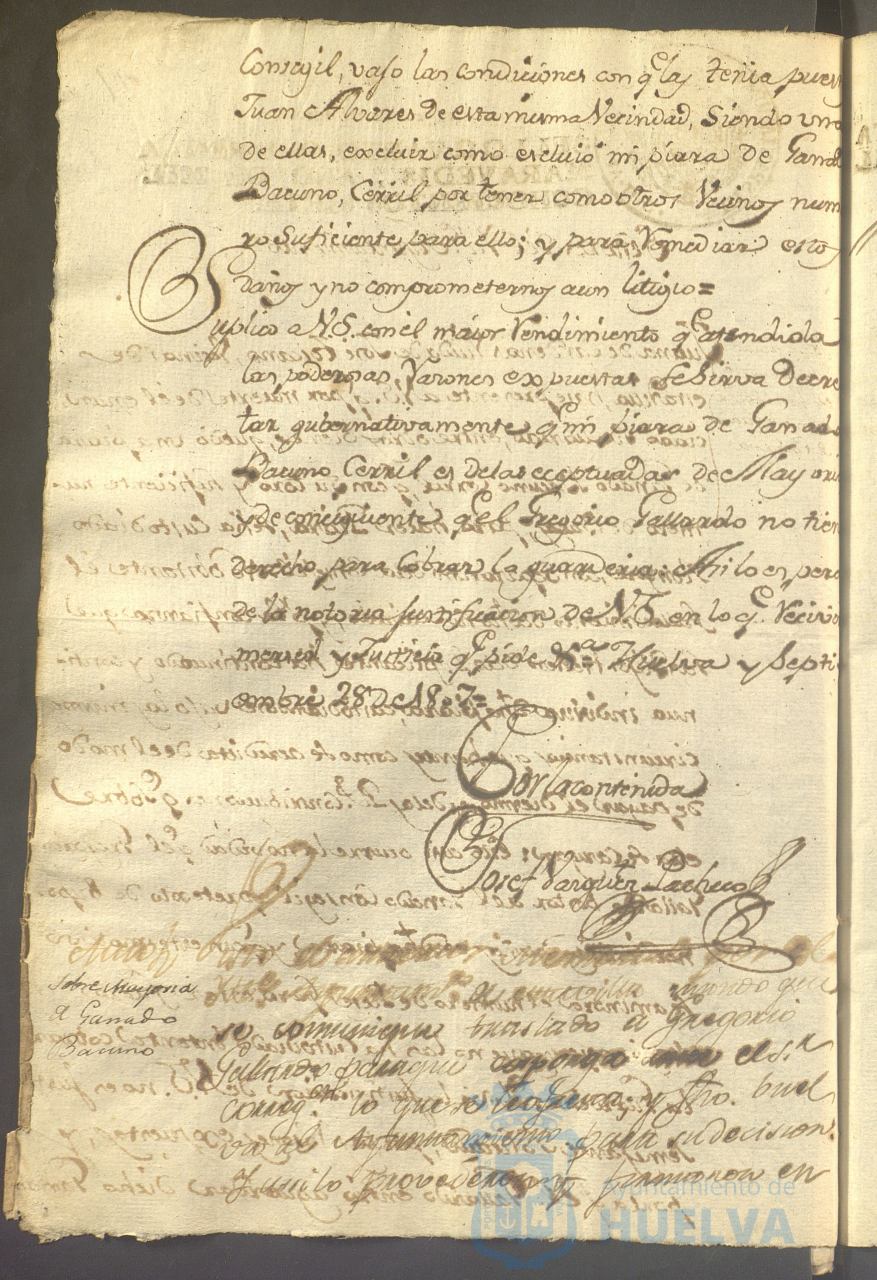 Consegil, vaso las condiciones con q.e las tenia pues
Juan Alvares de esta misma Vecindad, Siendo uno
de ellas, excluir como escluio mi piara de Ganad
Bacuno, Cerril por tener como otros Vecinos nume
ro Suficiente para ello; y para Remediar estos
daños y no comprometernos a un litigio=
Suplico a V.S. con el maior Rendimiento q.e atendida
las poderosas, Rarones expuestas se Sirva Decre
tar gubernativamente q.e mi piara de Ganado
Bacuno Cerril es de las eceptuadas de Mayoria
y de consiguiente q.e el Gregorio Gallardo no tien
derecho para Cobrar la guarderia: Asi lo espero
de la notoria Justificacion de V.S. en lo q.e Reciviré
merced y Justicia q.e pide &.a Huelva y Septi
embre 28 de 1807=
Por la contenida
Josef Varquer Pacheco
sobre Mayoria
d Ganado
Bacuno
se comunique traslado a Gregorio
Gallardo para que esponga el S.r
Correg.or lo que se le ofresca; y fho. buel
va al Ayuntamiento para su decision.
Y asi lo proveieron y firmaron en
Ayuntamiento de
HUELVA